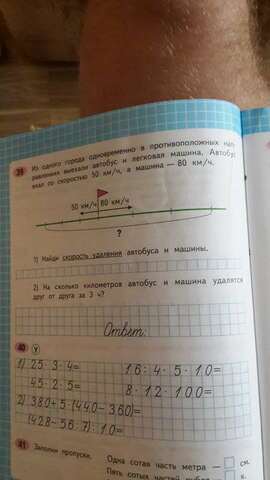 39 Из одного города одновременно в противоположных нап-
равлениях выехали автобус и легковая машина. Автобус
ехал со скоростью 50 км/ч, а машина — 80 км/ч.
50 км/ч 80 км/ч
?
1) Найди скорость удаления автобуса и машины.
2) На сколько километров автобус и машина удалятся
друг от друга за 3 ч?
Ответ:
40 У
1) 25·3·4= 16:4·5·10=
45·2·5= 8·12·100=
2) 380+5·(440-360)=
(428-56:7):10=
41 Заполни пропуски.
Одна сотая часть метра — см.
Пять сотых частей рубля — к.